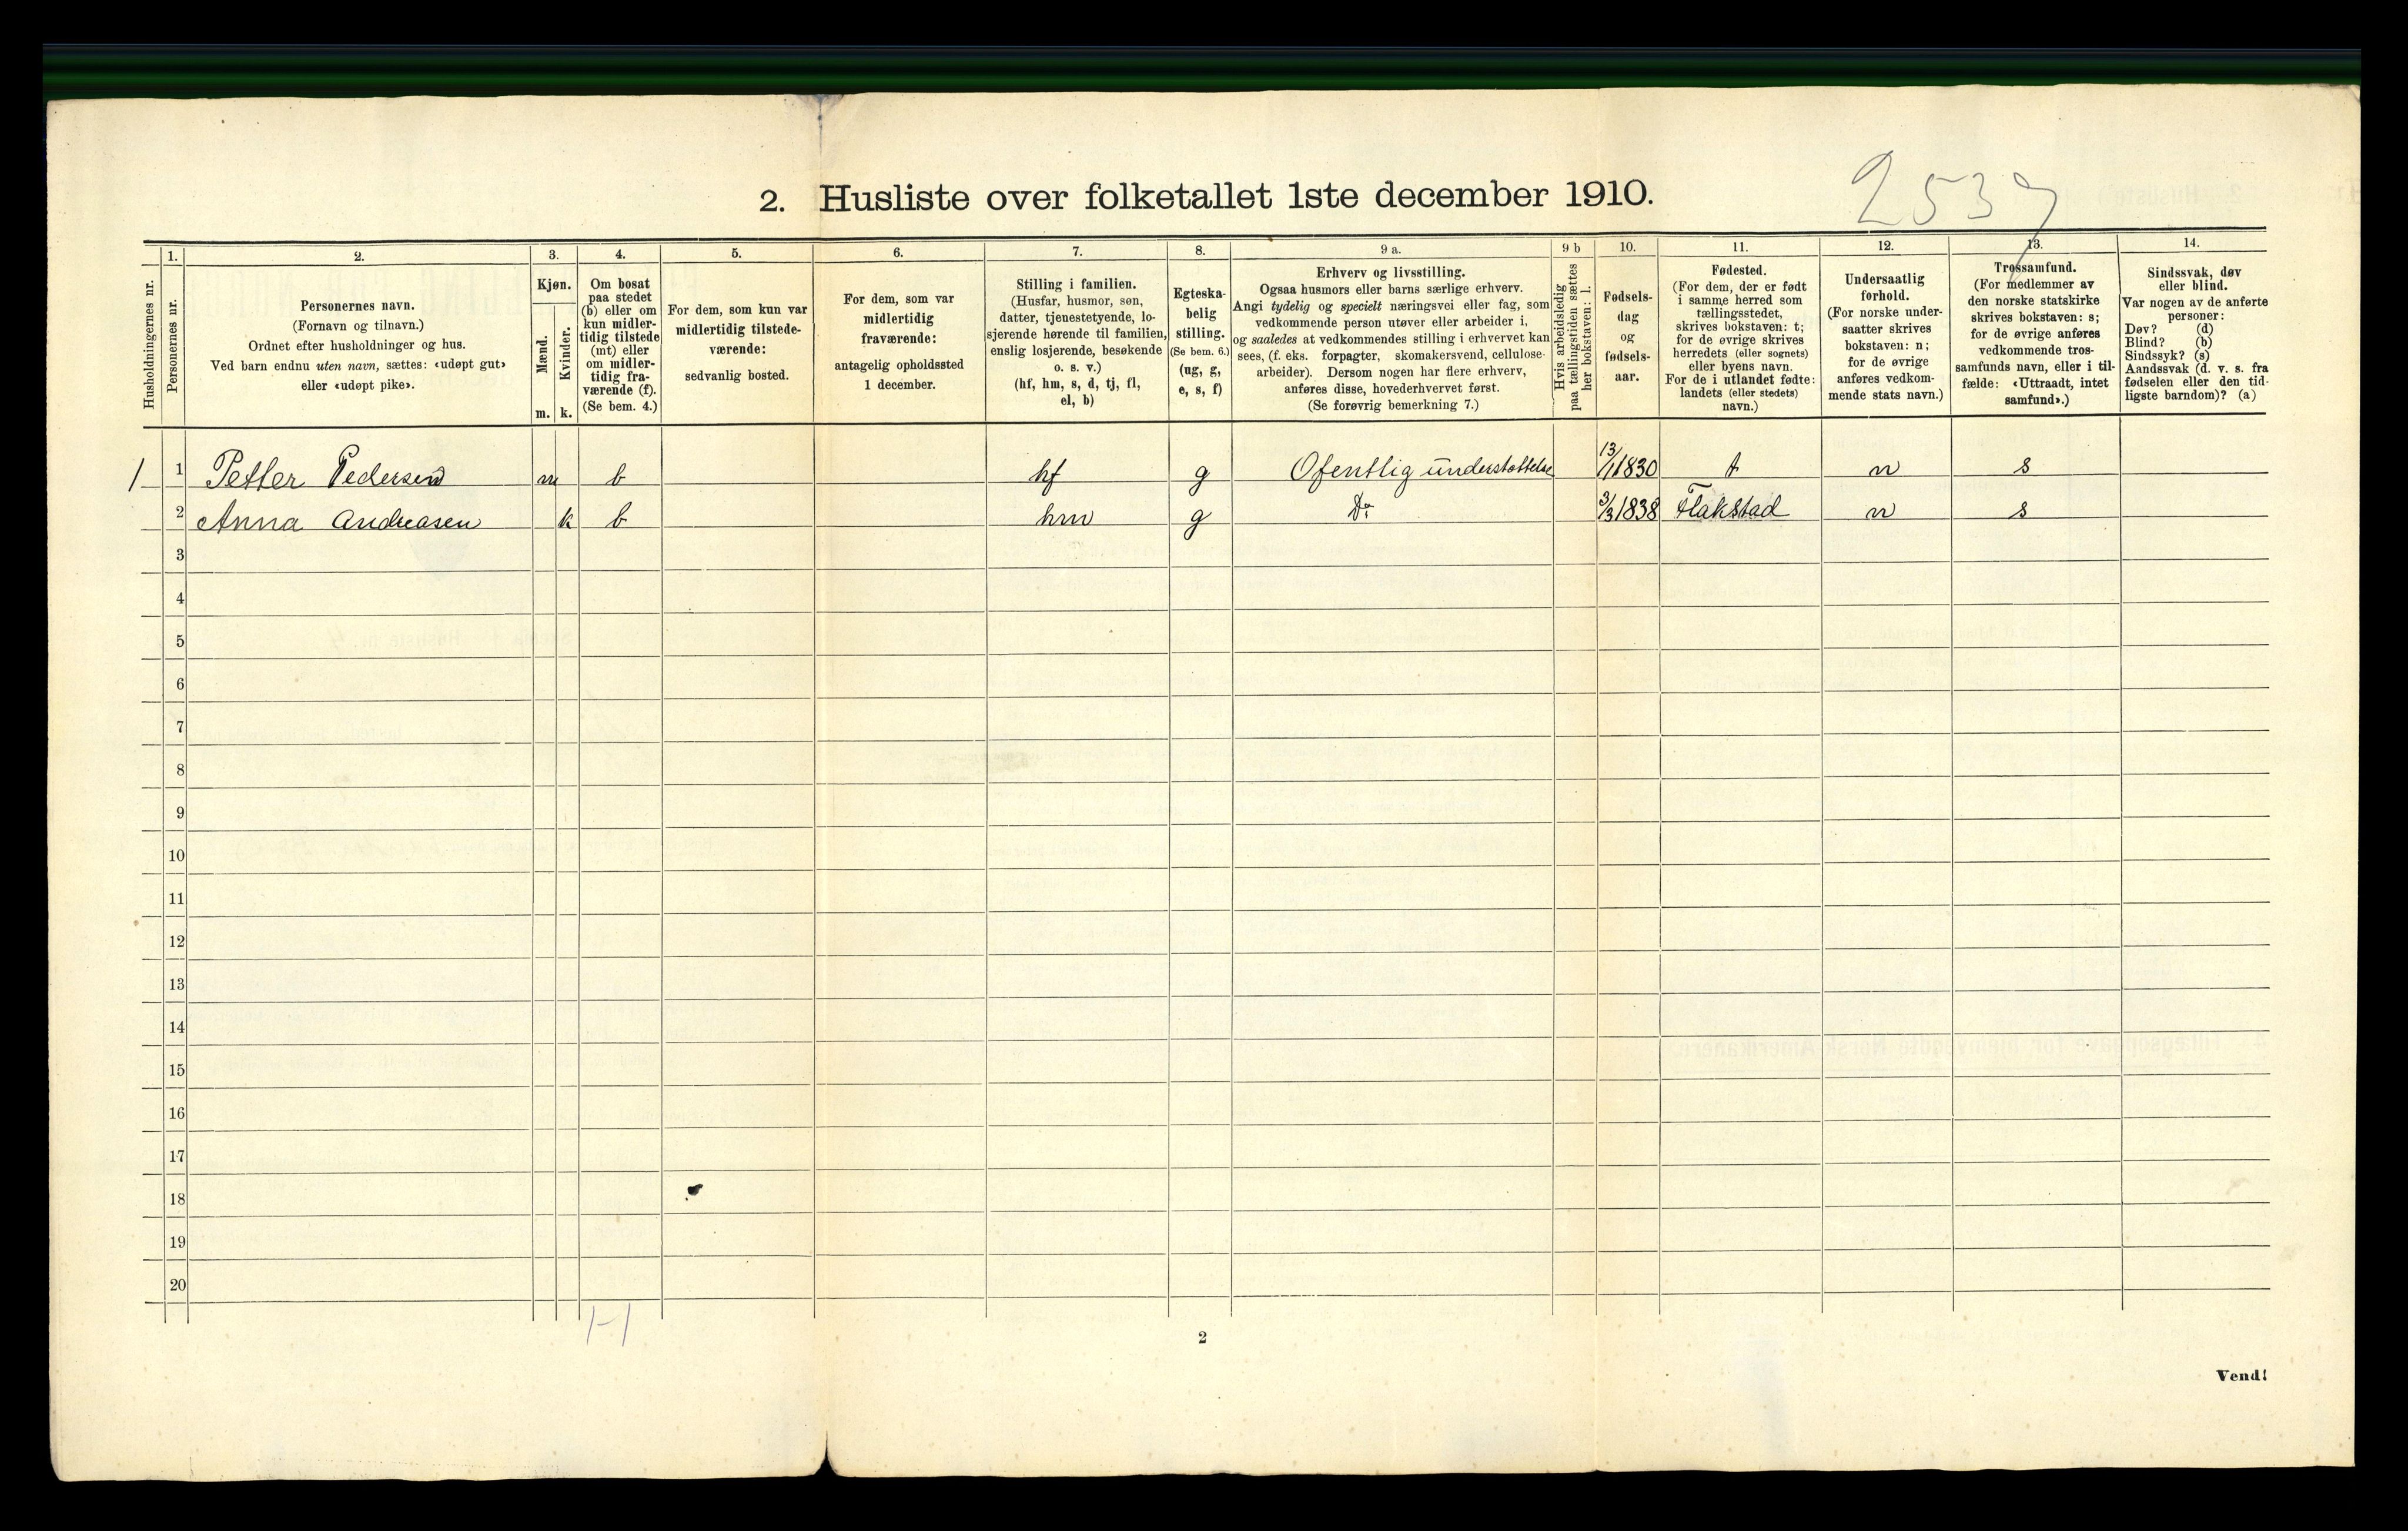 2539
2. Husliste over folketallet 1ste december 1910.
Husholdningernes nr.
1.
Personernes nr.
2.
Personernes navn.
(Fornavn og tilnavn.)
Ordnet efter husholdninger og hus.
Ved barn endnu uten navn, sættes: «udøpt gut»
eller «udøpt pike».
3.
Kjøn.
Mænd.
Kvinder.
m. k.
4.
Om bosat
paa stedet
(b) eller om
kun midler-
tidig tilstede
(mt) eller
om midler-
tidig fra-
værende (f).
(Se bem. 4.)
5.
For dem, som kun var
midlertidig tilstede-
værende:
sedvanlig bosted.
6.
For dem, som var
midlertidig
fraværende:
antagelig opholdssted
1 december.
7.
Stilling i familien.
(Husfar, husmor, søn,
datter, tjenestetyende, lo-
sjerende hørende til familien,
enslig losjerende, besøkende
o. s. v.)
(hf, hm, s, d, tj, fl,
el, b)
8.
Egteska-
belig
stilling.
(Se bem. 6.)
(ug, g,
e, s, f)
9 a.
Erhverv og livsstilling.
Ogsaa husmors eller barns særlige erhverv.
Angi tydelig og specielt næringsvei eller fag, som
vedkommende person utøver eller arbeider i,
og saaledes at vedkommendes stilling i erhvervet kan
sees, (f. eks. forpagter, skomakersvend, cellulose-
arbeider). Dersom nogen har flere erhverv,
anføres disse, hovederhvervet først.
(Se forøvrig bemerkning 7.)
9 b
Hvis arbeidsledig
paa tællingstiden sættes
her bokstaven: l.
10.
Fødsels-
dag
og
fødsels-
aar.
11.
Fødested.
(For dem, der er født
i samme herred som
tællingsstedet,
skrives bokstaven: t;
for de øvrige skrives
herredets (eller sognets)
eller byens navn.
For de i utlandet fødte:
landets (eller stedets)
navn.)
12.
Undersaatlig
forhold.
(For norske under-
saatter skrives
bokstaven: n;
for de øvrige
anføres vedkom-
mende stats navn.)
13.
Trossamfund.
(For medlemmer av
den norske statskirke
skrives bokstaven: s;
for de øvrige anføres
vedkommende tros-
samfunds navn, eller i til-
fælde: «Uttraadt, intet
samfund».)
14.
Sindssvak, døv
eller blind.
Var nogen av de anførte
personer:
Døv? (d)
Blind? (b)
Sindssyk? (s)
Aandssvak (d. v. s. fra
fødselen eller den tid-
ligste barndom)? (a)
1 1 Petter Pedersen m b hf g Ofentlig understøttelse 13/1 1830 t n s
2 Anna Andreasen k b hm g Do 3/3 1838 Flakstad n s
3
4
5
6
7
8
9
10
11
12
13
14
15
16
17
18
19
20
1-1
2
Vend!